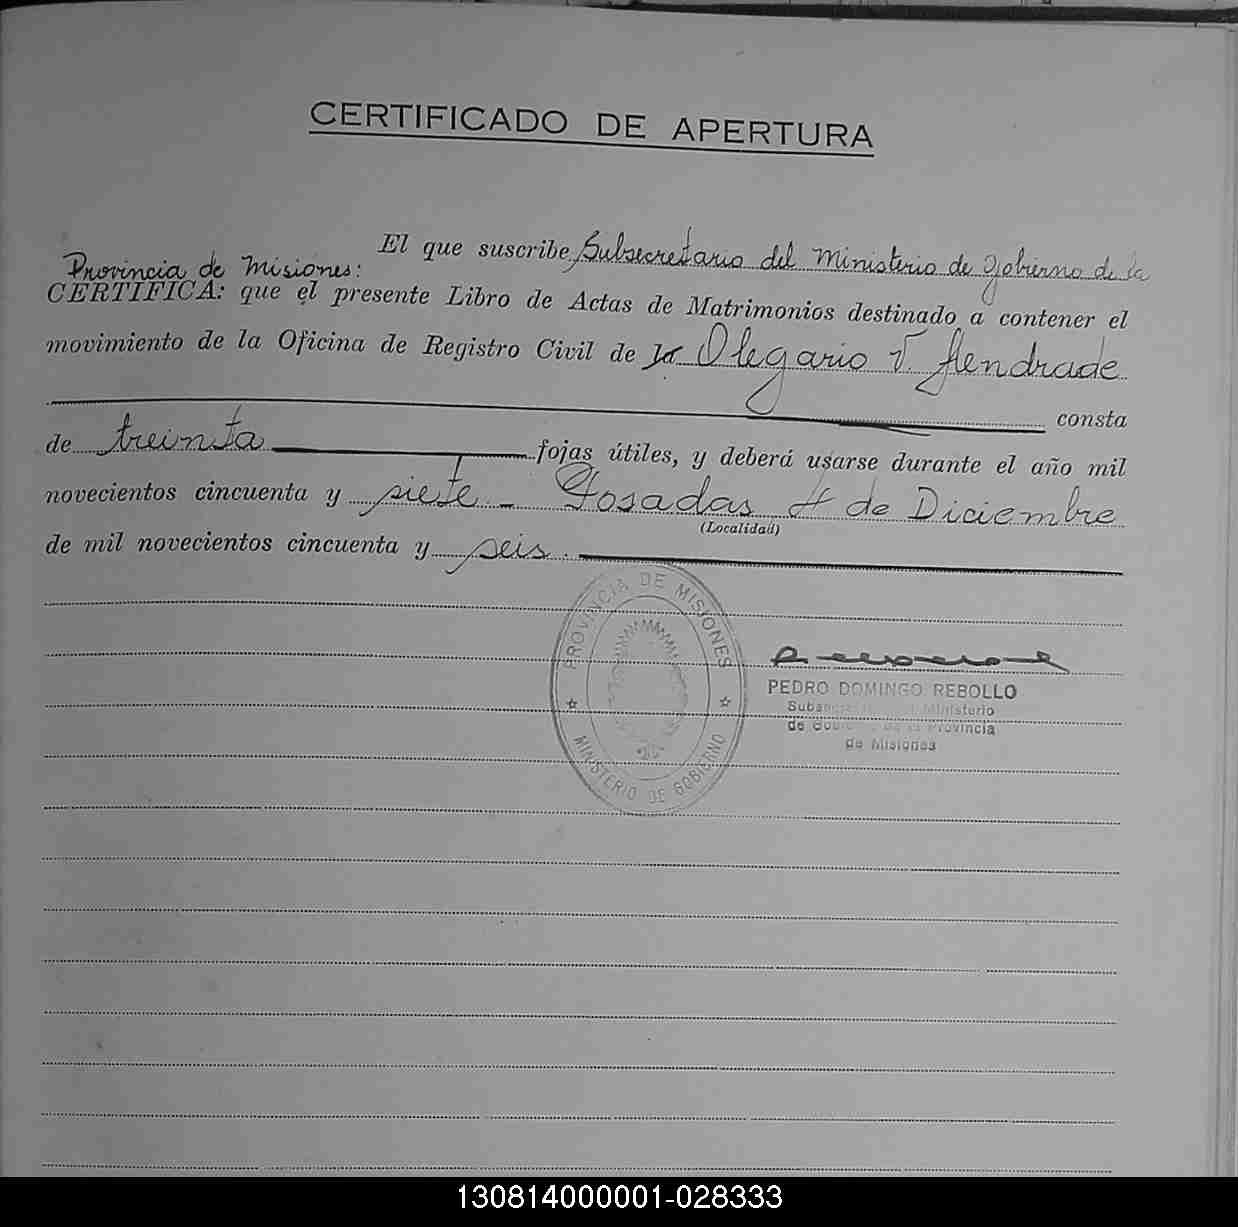 CERTIFICADO DE APERTURA
El que suscribe, Subsecretario del Ministerio de Gobierno de la
Provincia de Misiones:
CERTIFICA: que el presente Libro de Actas de Matrimonios destinado a contener el
movimiento de la Oficina de Registro Civil de Olegario V. Aendrade
consta
de treinta fojas útiles, y deberá usarse durante el año mil
novecientos cincuenta y siete - Posadas 4 de Diciembre
(Localidad)
de mil novecientos cincuenta y seis.
PROVINCIA DE MISIONES
MINISTERIO DE GOBIERNO
PEDRO DOMINGO REBOLLO
Ministerio
de Provincia
de Misiones
130814000001-028333